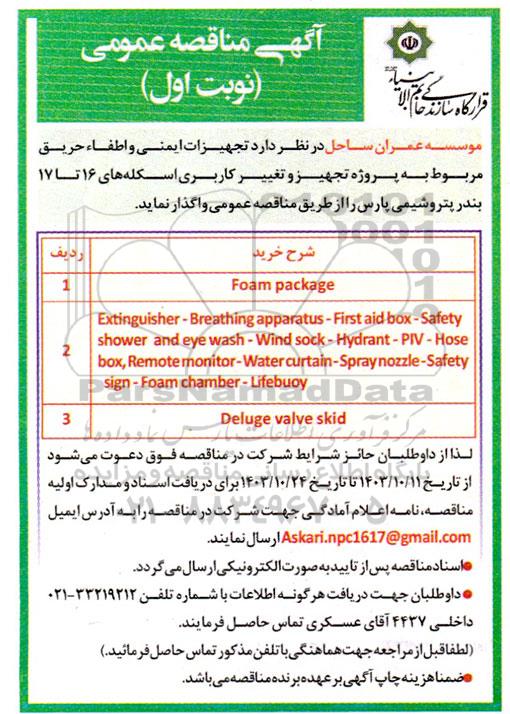 قرارگاه سازندگی خاتم الانبیاء
آگهی مناقصه عمومی
(نوبت اول)
موسسه عمران ساحل در نظر دارد تجهیزات ایمنی و اطفاء حریق
مربوط به پروژه تجهیز و تغییر کاربری اسکله‌های ۱۶ تا ۱۷
بندر پتروشیمی پارس را از طریق مناقصه عمومی واگذار نماید.
ردیف شرح خرید
1 Foam package
2 Extinguisher - Breathing apparatus - First aid box - Safety
shower and eye wash - Wind sock - Hydrant - PIV - Hose
box, Remote monitor - Water curtain - Spray nozzle - Safety
sign - Foam chamber - Lifebuoy
3 Deluge valve skid
ParsNamadData
مرکز فرآوری اطلاعات پارس نماد داده‌ها
پایگاه اطلاع رسانی مناقصه و مزایده
۰۲۱-۸۸۳۴۹۶۷۰-۵
لذا از داوطلبان حائز شرایط شرکت در مناقصه فوق دعوت می‌شود
از تاریخ ۱۴۰۳/۱۰/۱۱ تا تاریخ ۱۴۰۳/۱۰/۲۴ برای دریافت اسناد و مدارک اولیه
مناقصه، نامه اعلام آمادگی جهت شرکت در مناقصه را به آدرس ایمیل
Askari.npc1617@gmail.com ارسال نمایند.
●اسناد مناقصه پس از تایید به صورت الکترونیکی ارسال می‌گردد.
●داوطلبان جهت دریافت هرگونه اطلاعات با شماره تلفن ۳۳۲۱۹۲۱۲-۰۲۱
داخلی ۴۴۳۷ آقای عسکری تماس حاصل فرمایند.
(لطفا قبل از مراجعه جهت هماهنگی با تلفن مذکور تماس حاصل فرمائید.)
●ضمنا هزینه چاپ آگهی بر عهده برنده مناقصه می‌باشد.